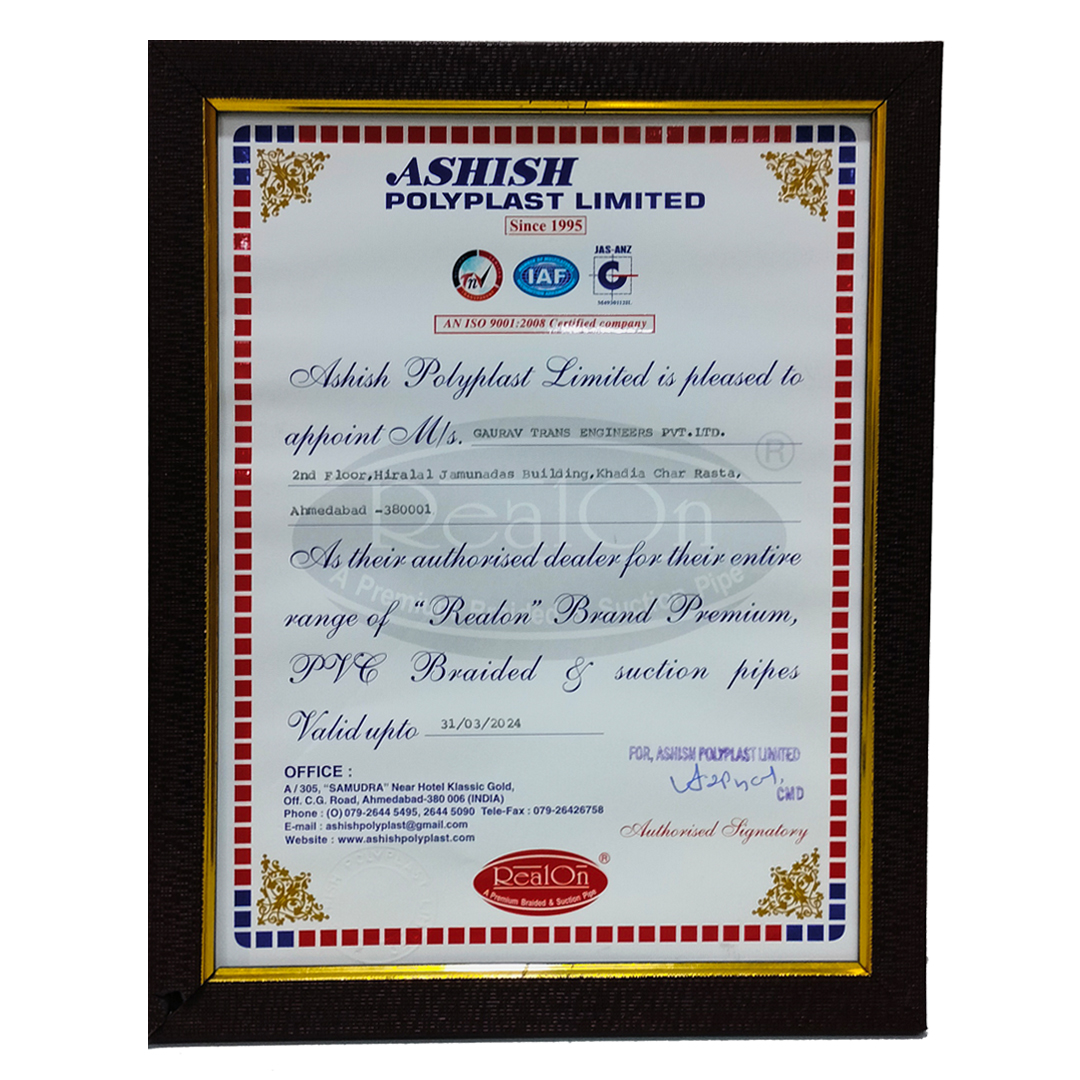 ASHISH
POLYPLAST LIMITED
Since 1995
TnV
IAF
JAS-ANZ
AN ISO 9001:2008 Certified company
Ashish Polyplast Limited is pleased to
appoint M/s. GAURAV TRANS ENGINEERS PVT.LTD.
2nd Floor,Hiralal Jamunadas Building,Khadia Char Rasta,
Ahmedabad -380001
RealOn ®
As their authorised dealer for their entire
range of "Realon" Brand Premium,
A Premium Braided & Suction Pipe
PVC Braided & suction pipes
Valid upto 31/03/2024
FOR, ASHISH POLYPLAST LIMITED
CMD
Authorised Signatory
OFFICE :
A / 305, "SAMUDRA" Near Hotel Klassic Gold,
Off. C.G. Road, Ahmedabad-380 006 (INDIA)
Phone : (O) 079-2644 5495, 2644 5090 Tele-Fax : 079-26426758
E-mail : ashishpolyplast@gmail.com
Website : www.ashishpolyplast.com
RealOn ®
A Premium Braided & Suction Pipe